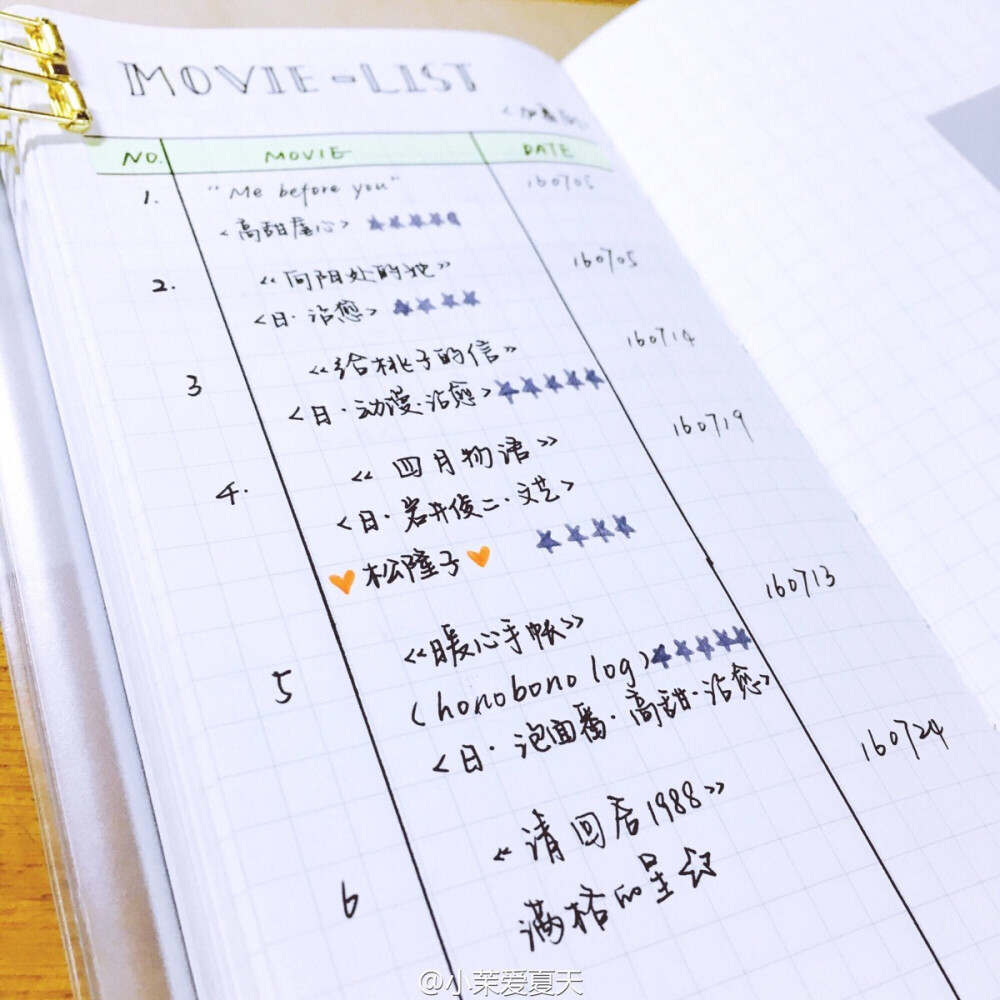 MOVIE-LIST
NO. MOVIE DATE
1. "Me before you" 160705
<高甜虐心>
2. 《向阳处的她》 160705
<日·治愈>
3 《给桃子的信》 160714
<日·动漫·治愈>
4. 《四月物语》 160719
<日·岩井俊二·文艺>
松隆子
5 《暖心手帐》 160713
(honobono log)
<日·泡面番·高甜·治愈>
6 《请回答1988》 160724
满格的星
@小茉爱夏天